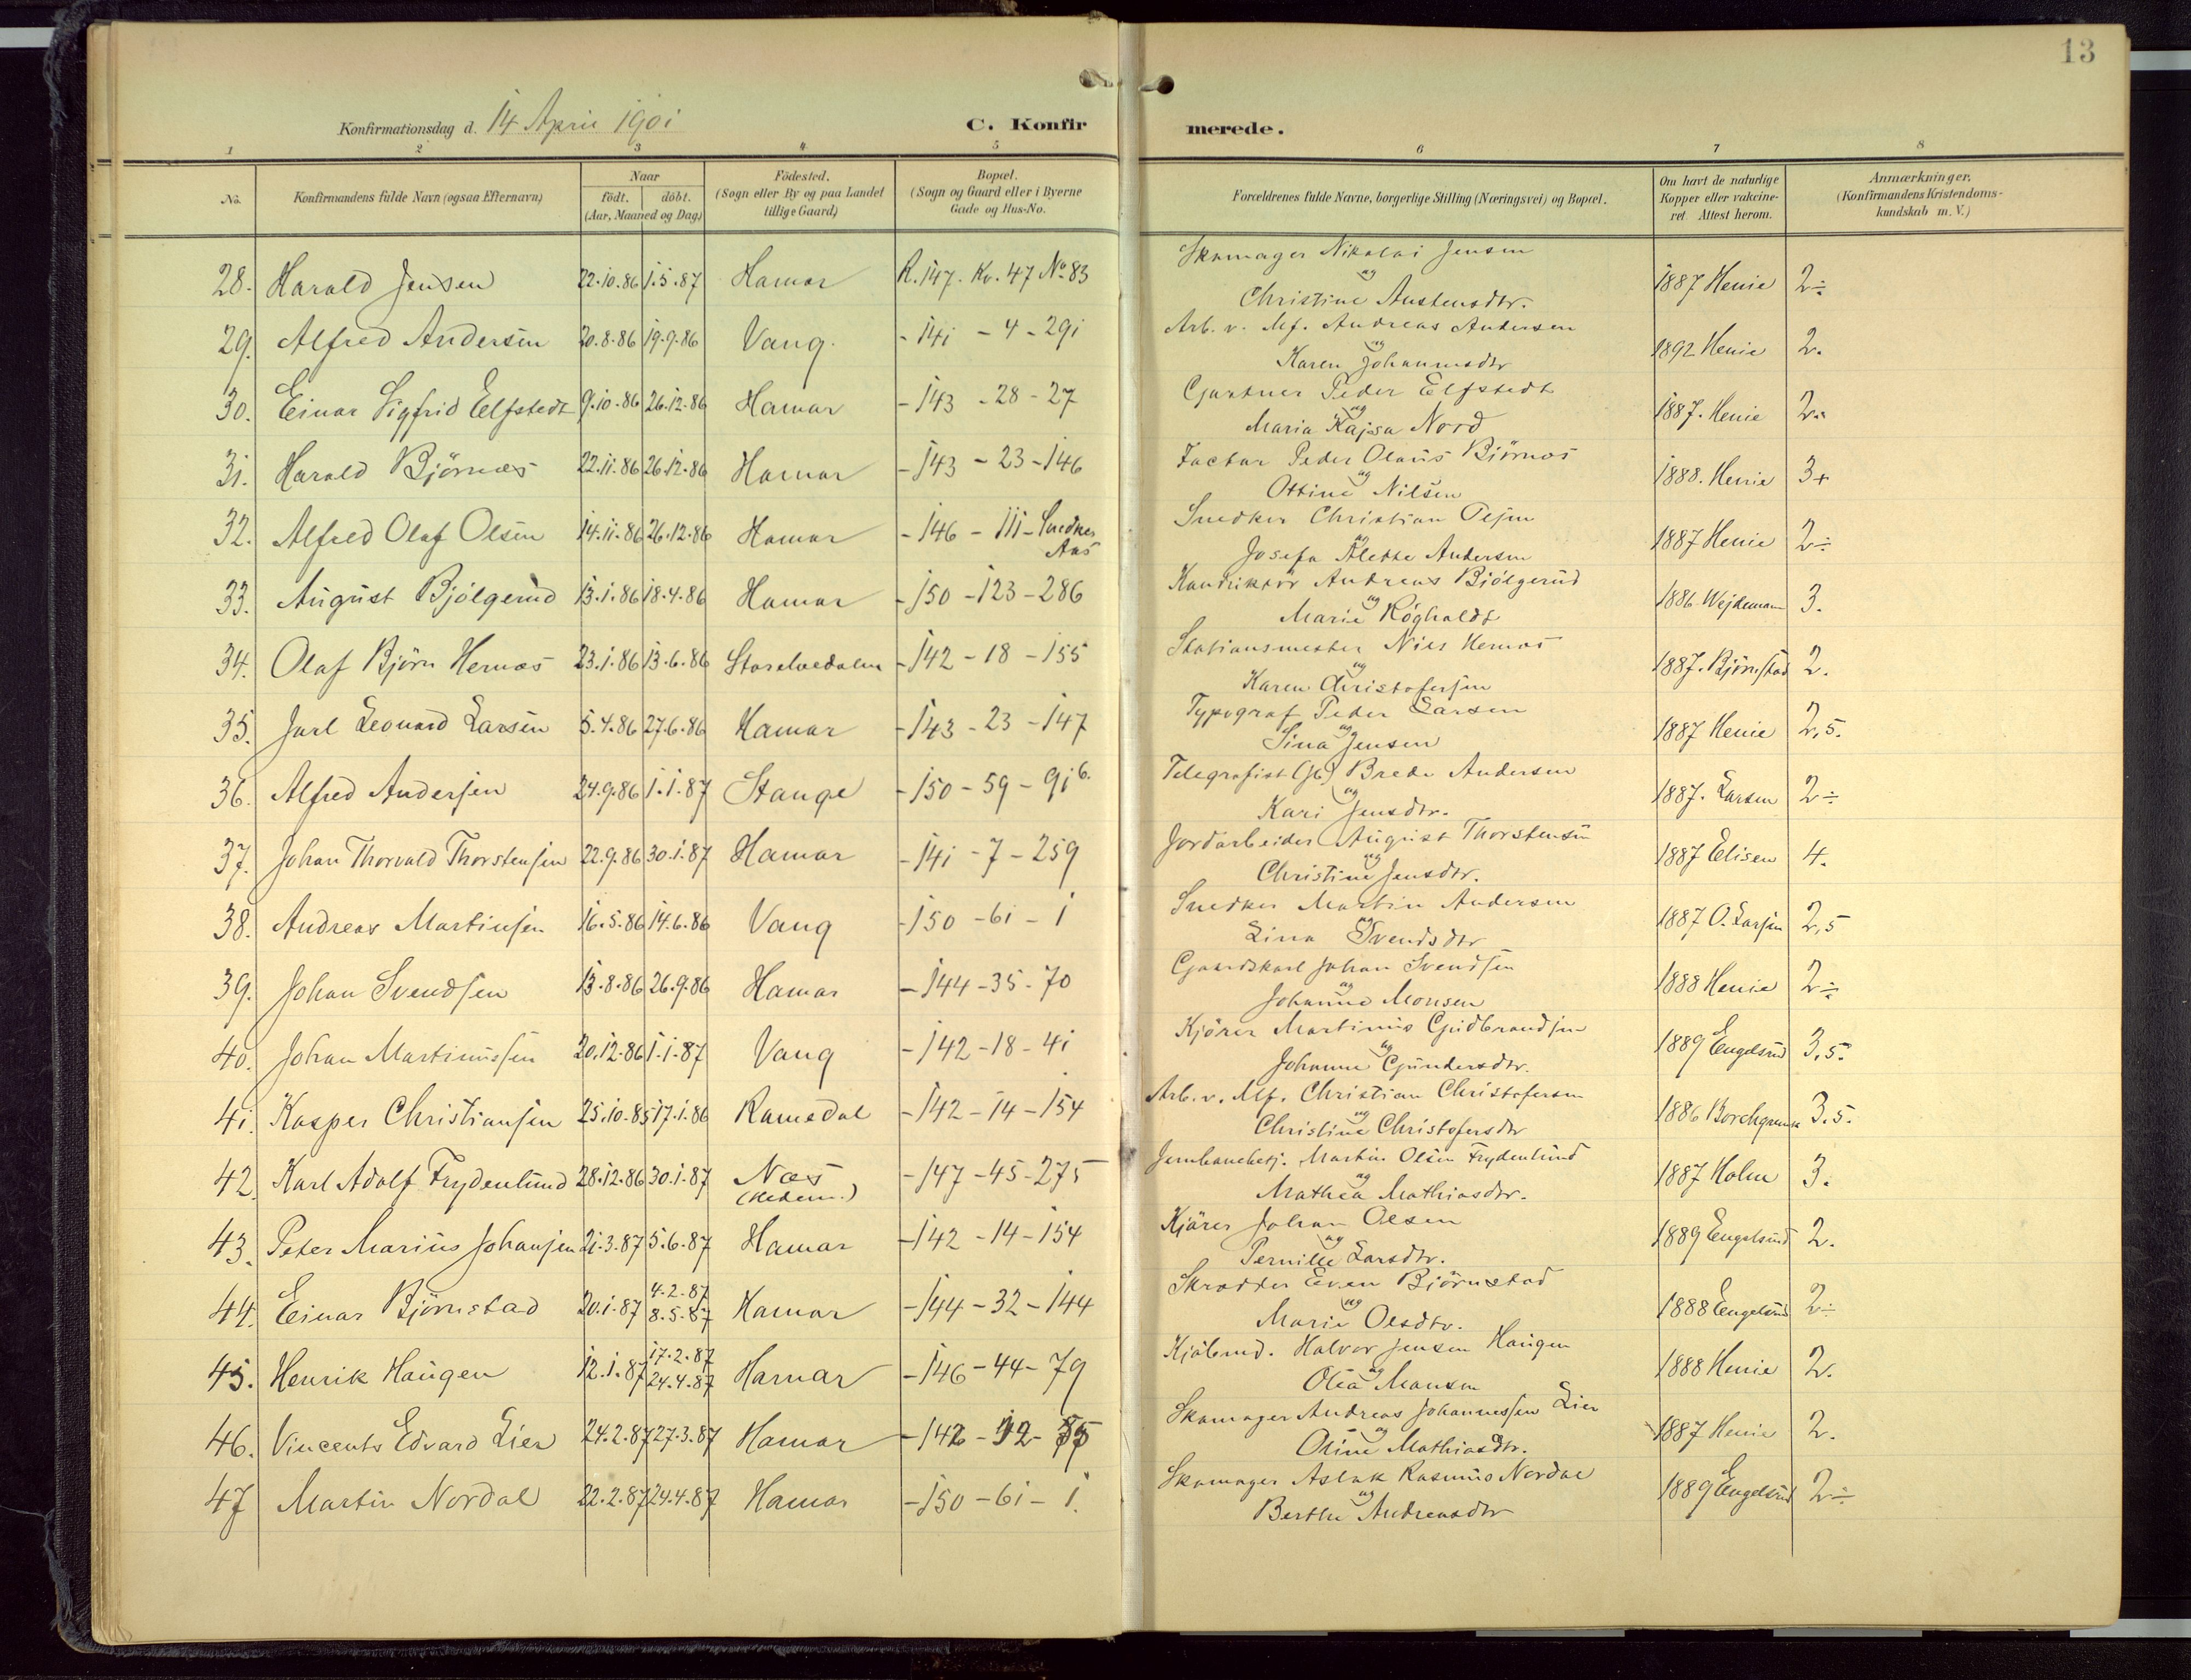 13
Konfirmationsdag d. 14 April 1901
C. Konfirmerede.
1 2 3 4 5 6 7 8
No. Konfirmandens fulde Navn (ogsaa Efternavn) Naar födt. döbt. (Aar, Maaned og Dag.) Födested. (Sogn eller By og paa Landet tillige Gaard) Bopæl. (Sogn og Gaard eller i Byerne Gade og Hus-No. Forældrenes fulde Navne, borgerlige Stilling (Næringsvei) og Bopæl. Om havt de naturlige Kopper eller vakcineret. Attest herom. Anmærkninger. (Konfirmandens Kristendomskundskab m. V.)
28. Harald Jensen 22.10.86 1.5.87 Hamar R.147. Kv. 47 No. 83 Skomager Nikolai Jensen og Christine Austensdtr. 1887 Henie 2÷
29. Alfred Andersen 20.8.86 19.9.86 Vang. - 141 - 4 - 291 Arb. v. Mf. Andreas Andersen og Karen Johannesdtr 1892 Henie 2.
30. Einar Sigfrid Elfstedt 9.10.86 26.12.86 Hamar - 143 - 28 - 27 Gartner Peder Elfstedt og Maria Kajsa Nord 1887. Henie 2÷
31. Harald Björnæs 22.11.86 26.12.86 Hamar - 143 - 23 - 146 Factor Peder Olaus Björnæs og Ottine Nilsen 1888. Henie 3+
32. Alfred Olaf Olsen 14.11.86 26.12.86 Hamar - 146 - 111 - Snedker Aas Snedker Christian Olsen og Josefa Alette Andersen 1887 Henie 2÷
33. August Bjölgerud 13.1.86 18.4.86 Hamar - 150 - 123 - 286 Konduktör Andreas Bjölgerud og Marie Röghaldt 1886 Wejdemann 3.
34. Olaf Björn Hernæs 23.1.86 13.6.86 Storelvedalen - 142 - 18 - 155 Stationsmester Nils Hernæs og Karen Christofersen 1887. Björnstad 2.
35. Jarl Leonard Larsen 5.4.86 27.6.86 Hamar - 143 - 23 - 147 Typograf Peder Larsen og Sina Jensen 1887 Henie 2,5.
36. Alfred Andersen 24.9.86 1.1.87 Stange - 150 - 59 - 91 b. Telegrafist (Jb.) Brede Andersen og Kari Jensdtr. 1887. Larsen 2÷
37. Johan Thorvald Thorstensen 22.9.86 30.1.87 Hamar - 141 - 7 - 259 Jordarbeider August Thorstensen og Christine Jensdtr. 1887 Elisen 4.
38. Andreas Martinsen 16.5.86 14.6.86 Vang - 150 - 61 - 1 Snedker Martin Andersen og Lina Svendsdtr 1887 O. Larsen 2,5
39. Johan Svendsen 13.8.86 26.9.86 Hamar - 144 - 35 - 70 Gaardskarl Johan Svendsen og Johanne Monsen 1888 Henie 2÷
40. Johan Martinussen 20.12.86 1.1.87 Vang - 142 - 18 - 41 Kjörer Martinus Gudbrandsen og Johanne Gundersdtr. 1889 Engelsrud 3,5.
41. Kasper Christiansen 25.10.85 17.1.86 Romedal - 142 - 14 - 154 Arb. v. Mf. Christian Christofersen og Christine Christofersdtr 1886 Borchgrevink 3.5.
42. Karl Adolf Frydenlund 28.12.86 30.1.87 Næs (Hedem.) - 147 - 45 - 275 Jernbanebetj. Martin Olsen Frydenlund og Mathea Mathiasdtr. 1887 Holm 3.
43. Peter Marius Johansen 21.3.87 5.6.87 Hamar - 142 - 14 - 154 Kjörer Johan Olsen og Pernille Larsdtr. 1889 Engelsrud 2.
44. Einar Björnstad 20.1.87 4.2.87 8.5.87 Hamar - 144 - 32 - 144 Skrædder Even Björnstad og Marie Olsdtr. 1888 Engelsrud 2÷
45. Henrik Haugen 12.1.87 17.2.87 24.4.87 Hamar - 146 - 44 - 79 Kjöbmd. Halvor Jensen Haugen og Olea Hansen 1888 Henie 2.
46. Vincents Edvard Lier 24.2.87 27.3.87 Hamar - 142 - 12 - Skomager Andreas Johannessen Lier og Oline Mathiasdtr. 1887 Henie 2.
47 Martin Nordal 22.2.87 24.4.87 Hamar - 150 - 61 - 1. Skomager Aslak Rasmus Nordal og Berthe Andreasdtr 1889 Engelsrud 2÷